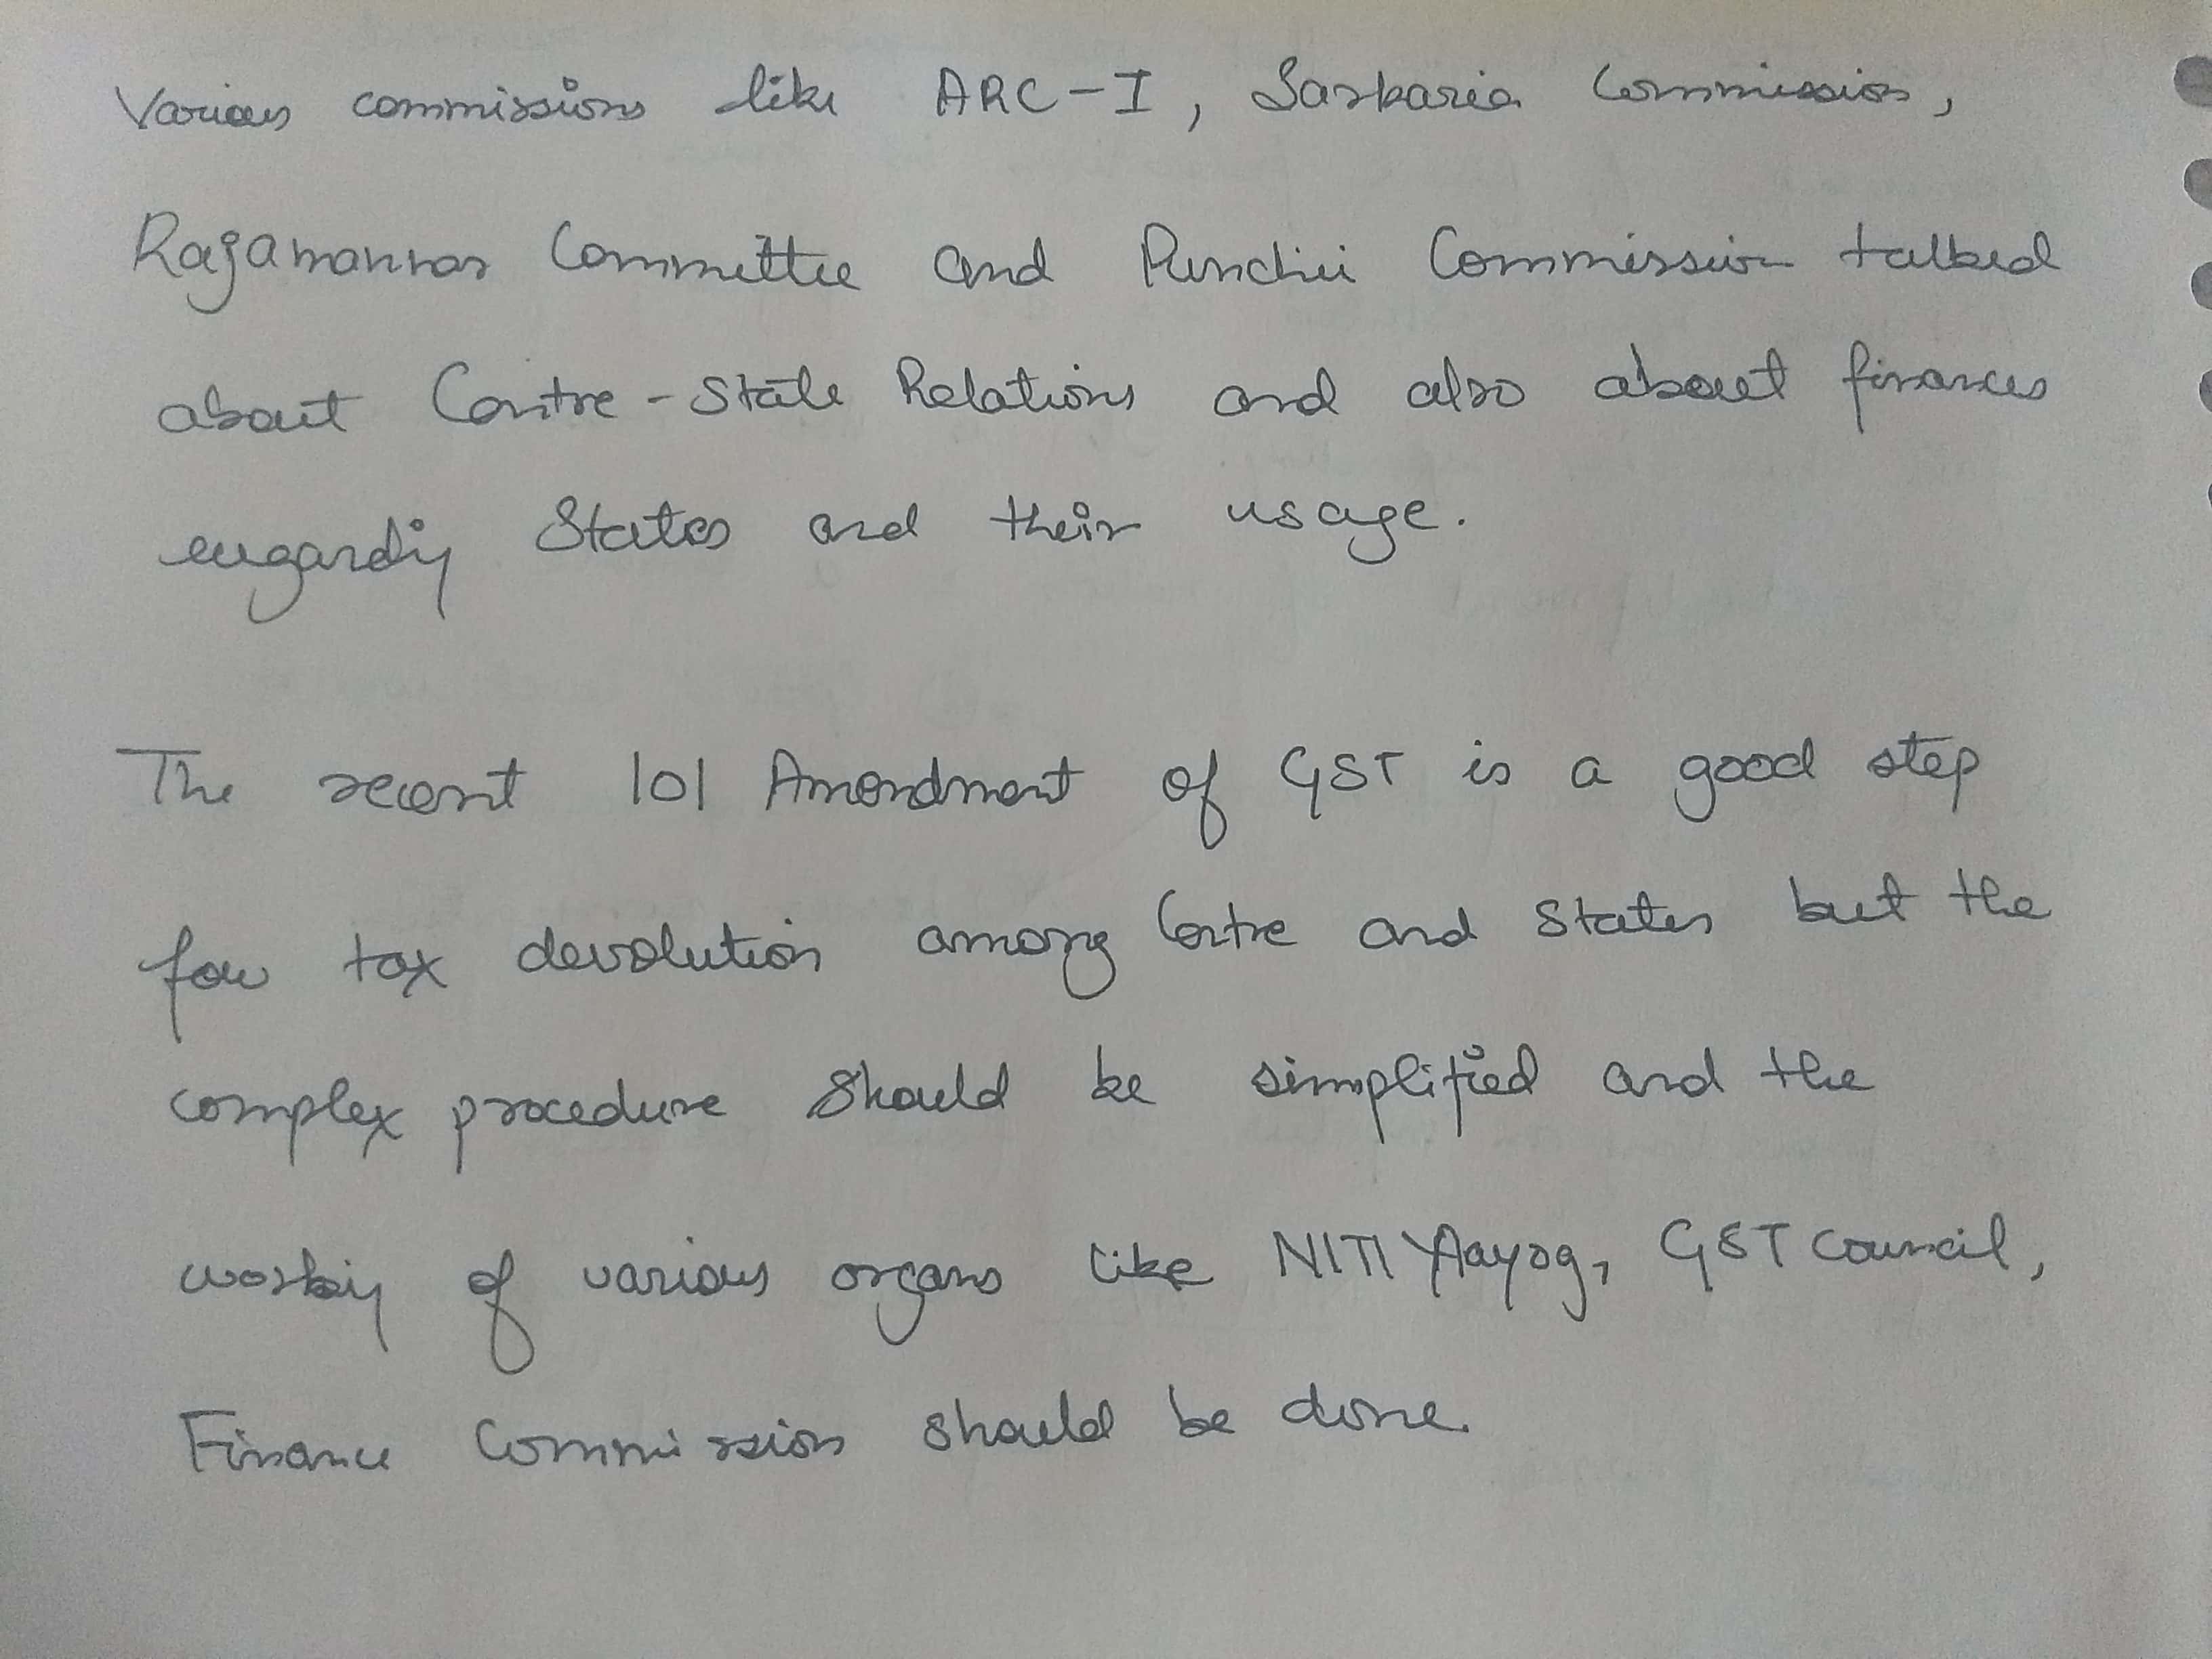 Various commissions like ARC-I, Sarkaria Commission,
Rajamannar Committee and Punchii Commission talked
about Centre-State Relations and also about finances
regarding States and their usage.
The recent 101 Amendment of GST is a good step
for tax devolution among Centre and States but the
complex procedure should be simplified and the
working of various organs like NITI Aayog, GST Council,
Finance Commission should be done.